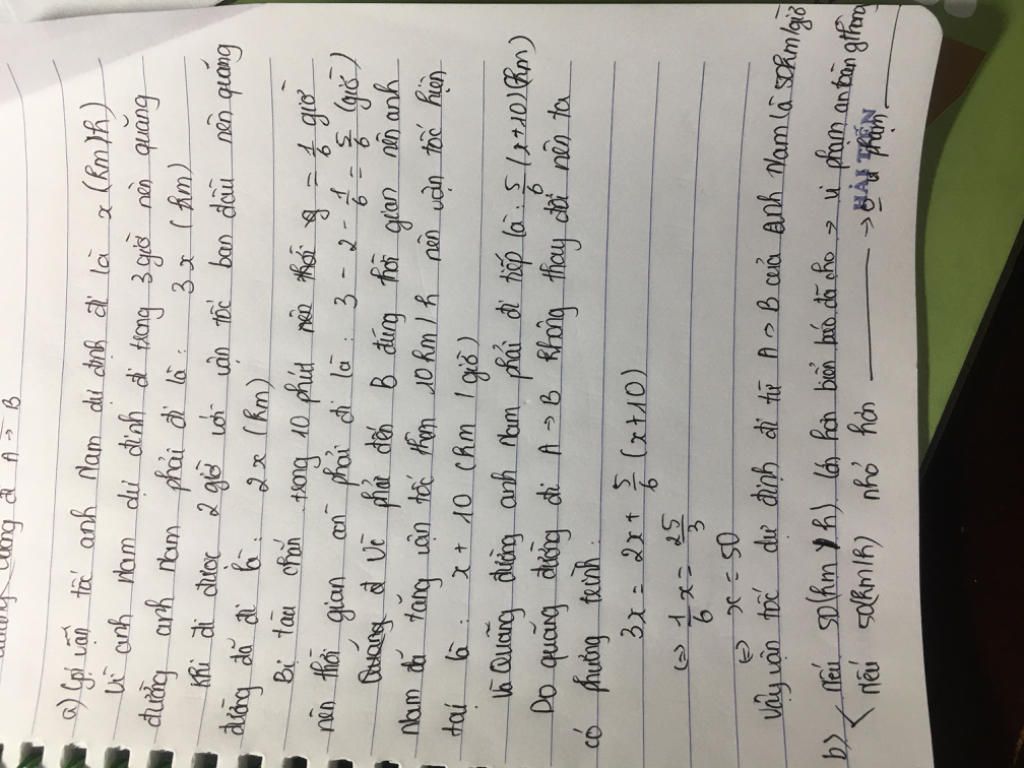 đường đi A → B
a) Gọi vận tốc anh Nam dự định đi là x (km/h)
Vì anh Nam dự định đi trong 3 giờ nên quãng
đường anh Nam phải đi là: 3x (km)
Khi đi được 2 giờ với vận tốc ban đầu nên quãng
đường đã đi là: 2x (km)
Bị tàu chắn trong 10 phút nên thời = 1/6 giờ
nên thời gian còn phải đi là: 3 - 2 - 1/6 = 5/6 (giờ)
Vì phải đến B đúng thời gian nên anh
Nam đã tăng vận tốc thêm 10 km/h nên vận tốc hiện
tại là: x + 10 (km/giờ)
Và Quãng đường anh Nam phải đi tiếp là: 5/6 (x+10)(km)
Do quãng đường đi A → B không thay đổi nên ta
có phương trình:
3x = 2x + 5/6 (x+10)
(=) 1/6 x = 25/3
(=) x = 50
Vậy vận tốc dự định đi từ A → B của anh Nam là 50km/giờ
b) Nếu 50(km/h) lớn hơn biển báo đã cho → vi phạm an toàn giao thông
Nếu 50(km/h) nhỏ hơn → phạm
HẢI TIẾN